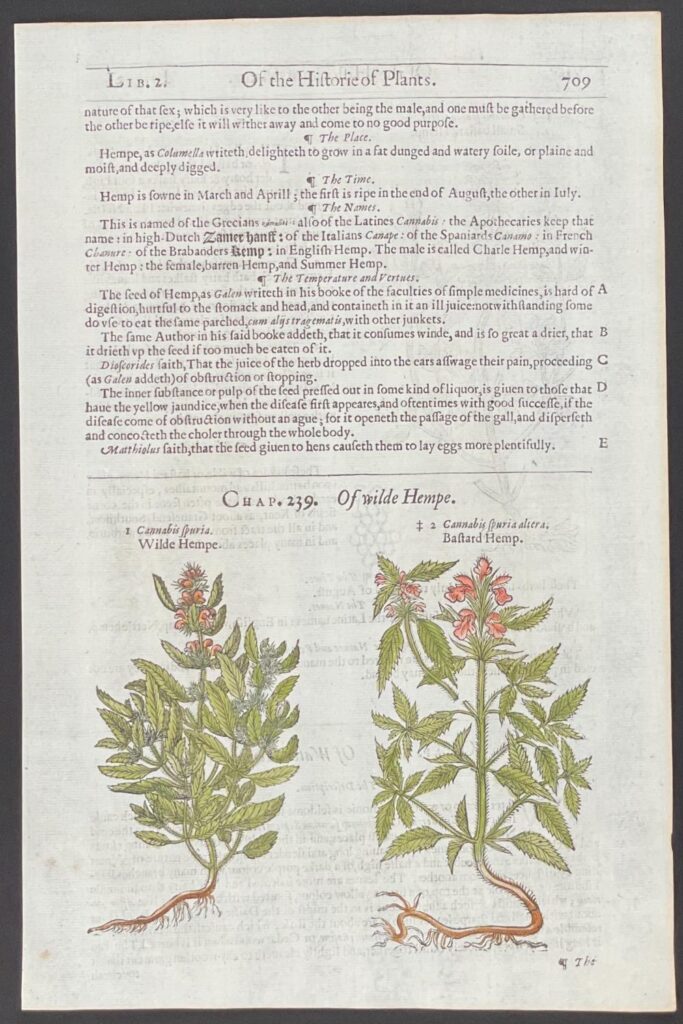 LIB. 2. Of the Historie of Plants. 709
nature of that sex; which is very like to the other being the male, and one must be gathered before
the other be ripe, else it will wither away and come to no good purpose.
¶ The Place.
Hempe, as Columella writeth, delighteth to grow in a fat dunged and watery soile, or plaine and
moist, and deeply digged.
¶ The Time.
Hemp is sowne in March and Aprill; the first is ripe in the end of August, the other in Iuly.
¶ The Names.
This is named of the Grecians also of the Latines Cannabis: the Apothecaries keep that
name: in high-Dutch Zamer hanff: of the Italians Canape: of the Spaniards Canamo: in French
Chanure: of the Brabanders Kemp: in English Hemp. The male is called Charle Hemp, and win-
ter Hemp: the female, barren Hemp, and Summer Hemp.
¶ The Temperature and Vertues.
The seed of Hemp, as Galen writeth in his booke of the faculties of simple medicines, is hard of A
digestion, hurtful to the stomack and head, and containeth in it an ill juice: notwithstanding some
do vse to eat the same parched, cum alijs tragematis, with other junkets.
The same Author in his said booke addeth, that it consumes winde, and is so great a drier, that B
it drieth vp the seed if too much be eaten of it.
Dioscorides saith, That the juice of the herb dropped into the ears asswage their pain, proceeding C
(as Galen addeth) of obstruction or stopping.
The inner substance or pulp of the seed pressed out in some kind of liquor, is giuen to those that D
haue the yellow jaundice, when the disease first appeares, and oftentimes with good successe, if the
disease come of obstruction without an ague; for it openeth the passage of the gall, and disperseth
and concocteth the choler through the whole body.
Matthiolus saith, that the seed giuen to hens causeth them to lay eggs more plentifully. E
CHAP. 239. Of wilde Hempe.
1 Cannabis spuria.
Wilde Hempe.
‡ 2 Cannabis spuria altera.
Bastard Hemp.
¶ The